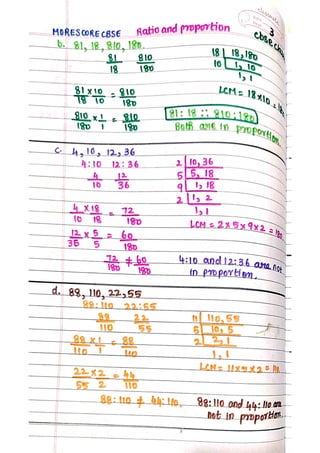 MORESCORE CBSE Ratio and proportion 3
b. 81, 18, 810, 180.
81 810 18 | 18, 180
18 180 10 | 1, 10
1, 1
81 x 10 = 810 LCM = 18 x 10 =
18 10 180
810 x 1 = 810 81 : 18 :: 810 : 180
180 1 180 Both are in proportion.
c. 4, 10, 12, 36
4:10 12:36 2 | 10, 36
4 12 5 | 5, 18
10 36 9 | 1, 18
2 | 1, 2
4 x 18 = 72 1, 1
10 18 180 LCM = 2 x 5 x 9 x 2 =
12 x 5 = 60
36 5 180
72 ≠ 60 4:10 and 12:36 are not
180 180 in proportion.
d. 88, 110, 22, 55
88:110 22:55
88 22 11 | 110, 55
110 55 5 | 10, 5
88 x 1 = 88 2 | 2, 1
110 1 110 1, 1
22 x 2 = 44 LCM = 11 x 5 x 2 = 110
55 2 110
88:110 ≠ 44:110. 88:110 and 44:110 are
not in proportion.